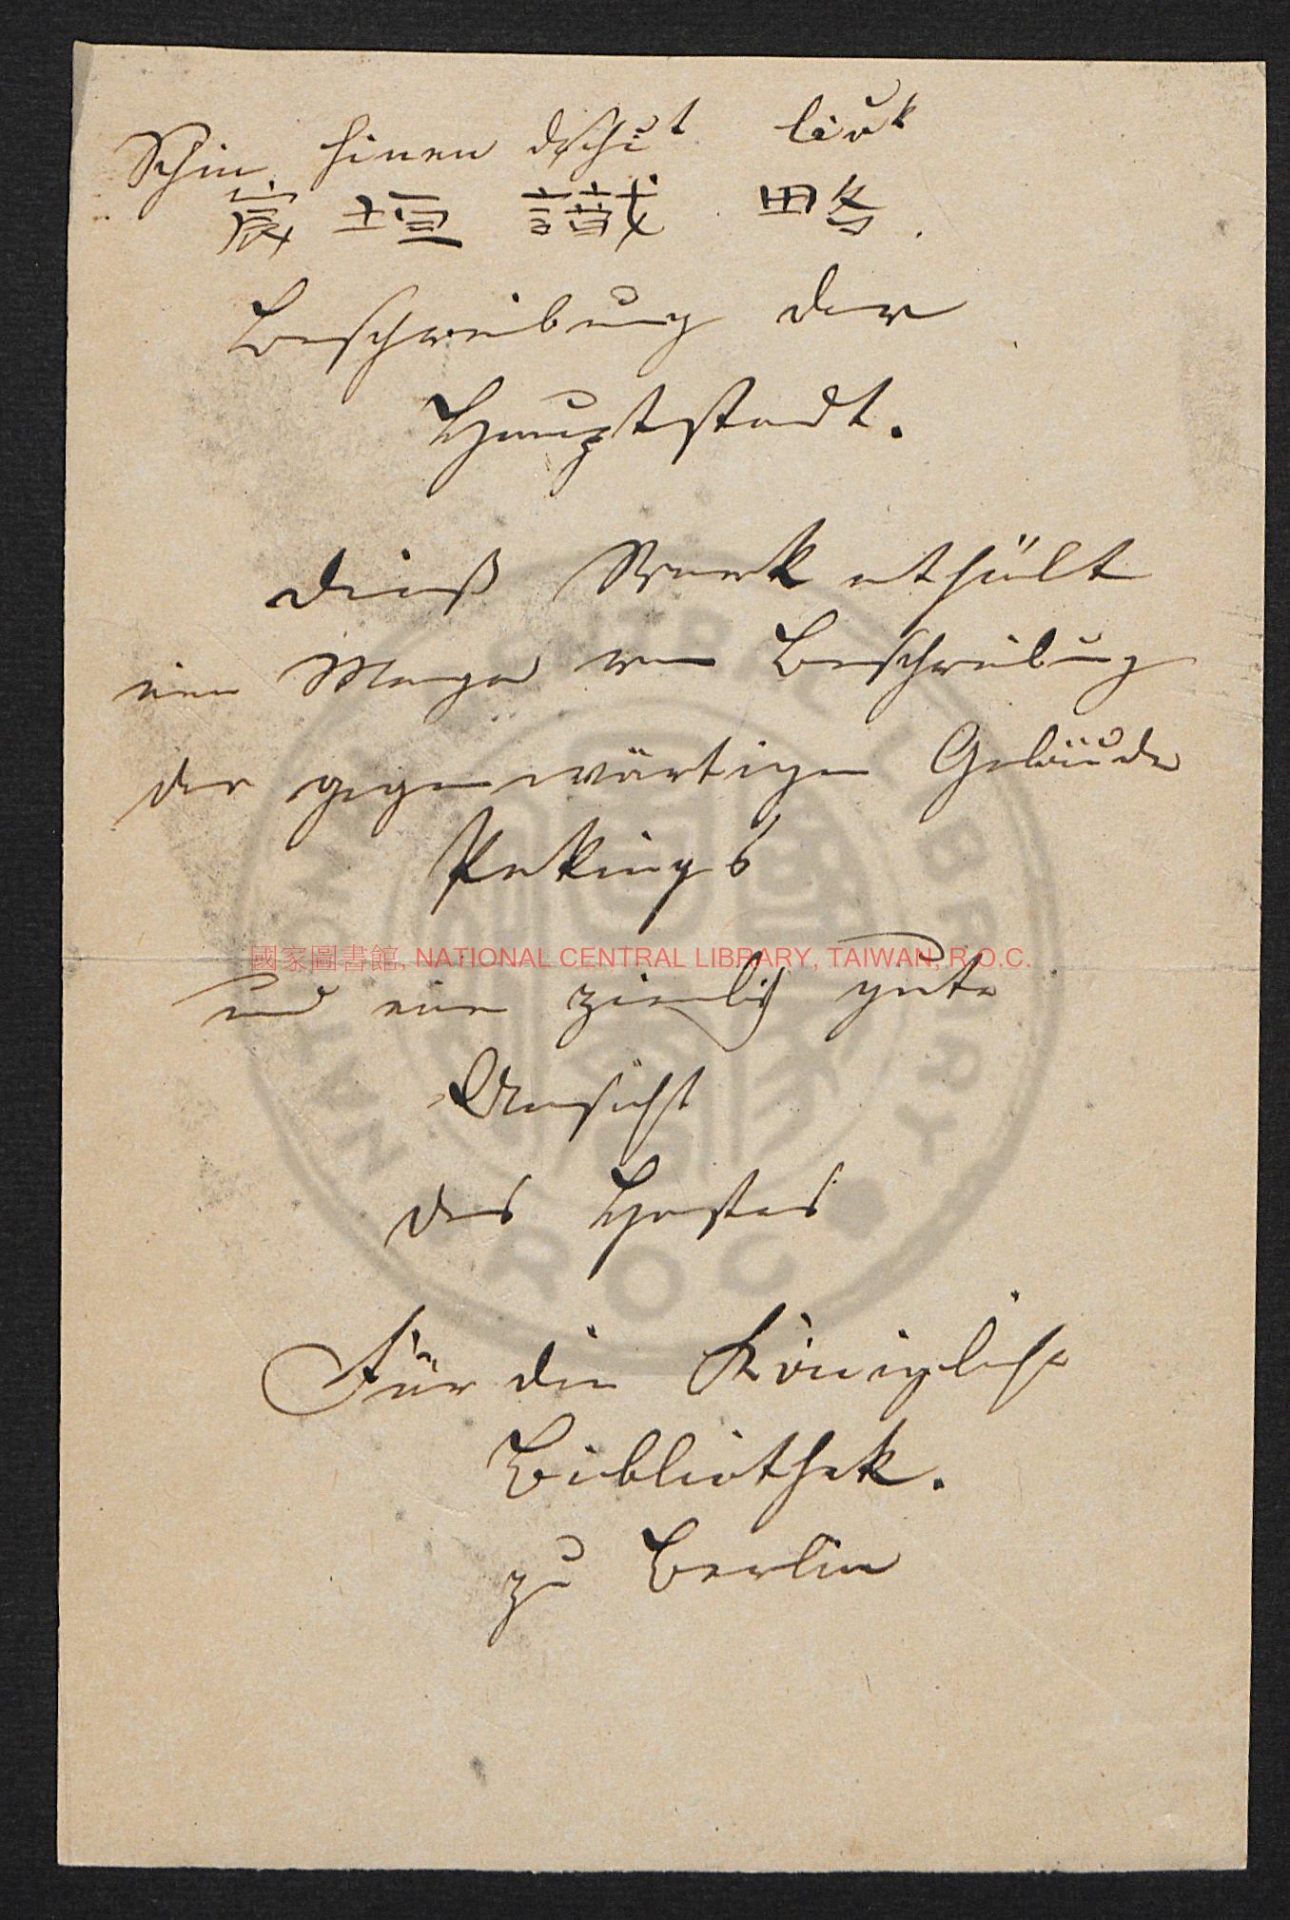 Schin hiuen dschit liok
宸垣識略.
Beschreibung der
Hauptstadt.
Dieß Werk enthält
eine Menge von Beschreibung
der gegenwärtigen Gebäude
Pekings
國家圖書館, NATIONAL CENTRAL LIBRARY, TAIWAN, R.O.C.
und eine ziemlich gute
Ansicht
des
Für die Königliche
Bibliothek.
zu Berlin
NATIONAL CENTRAL LIBRARY
ROC